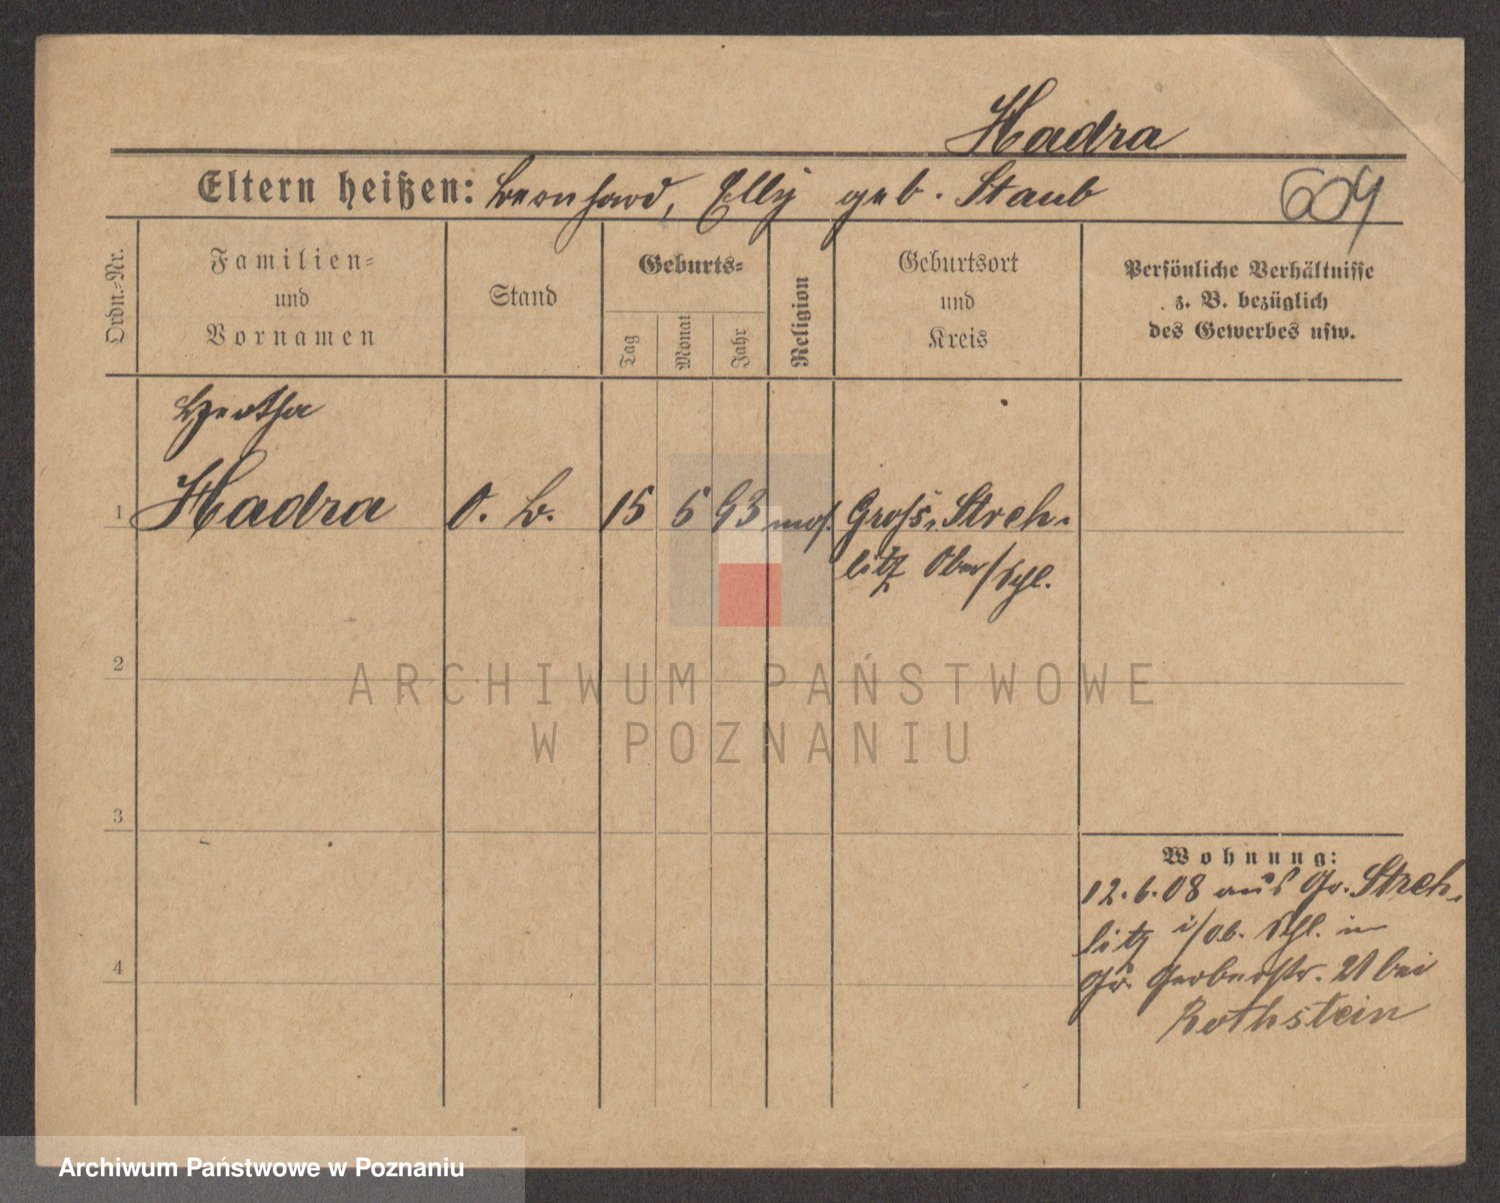 Hadra
Eltern heißen: Bernhard, Elly geb. Staub
604
Ordn.-Nr.
Familien-
und
Vornamen
Stand
Geburts-
Tag
Monat
Jahr
Religion
Geburtsort
und
Kreis
Persönliche Verhältnisse
z. B. bezüglich
des Gewerbes usw.
Hertha
1 Hadra O. B. 15 5 93 mos. Gross-Streh-
litz Ober/Schl.
2
ARCHIWUM PAŃSTWOWE
W POZNANIU
3
Wohnung:
12.6.08 aus Gr. Streh-
litz i/Ob. Schl. in
4
Gr. Gerberstr. 21 bei
Rothstein
Archiwum Państwowe w Poznaniu